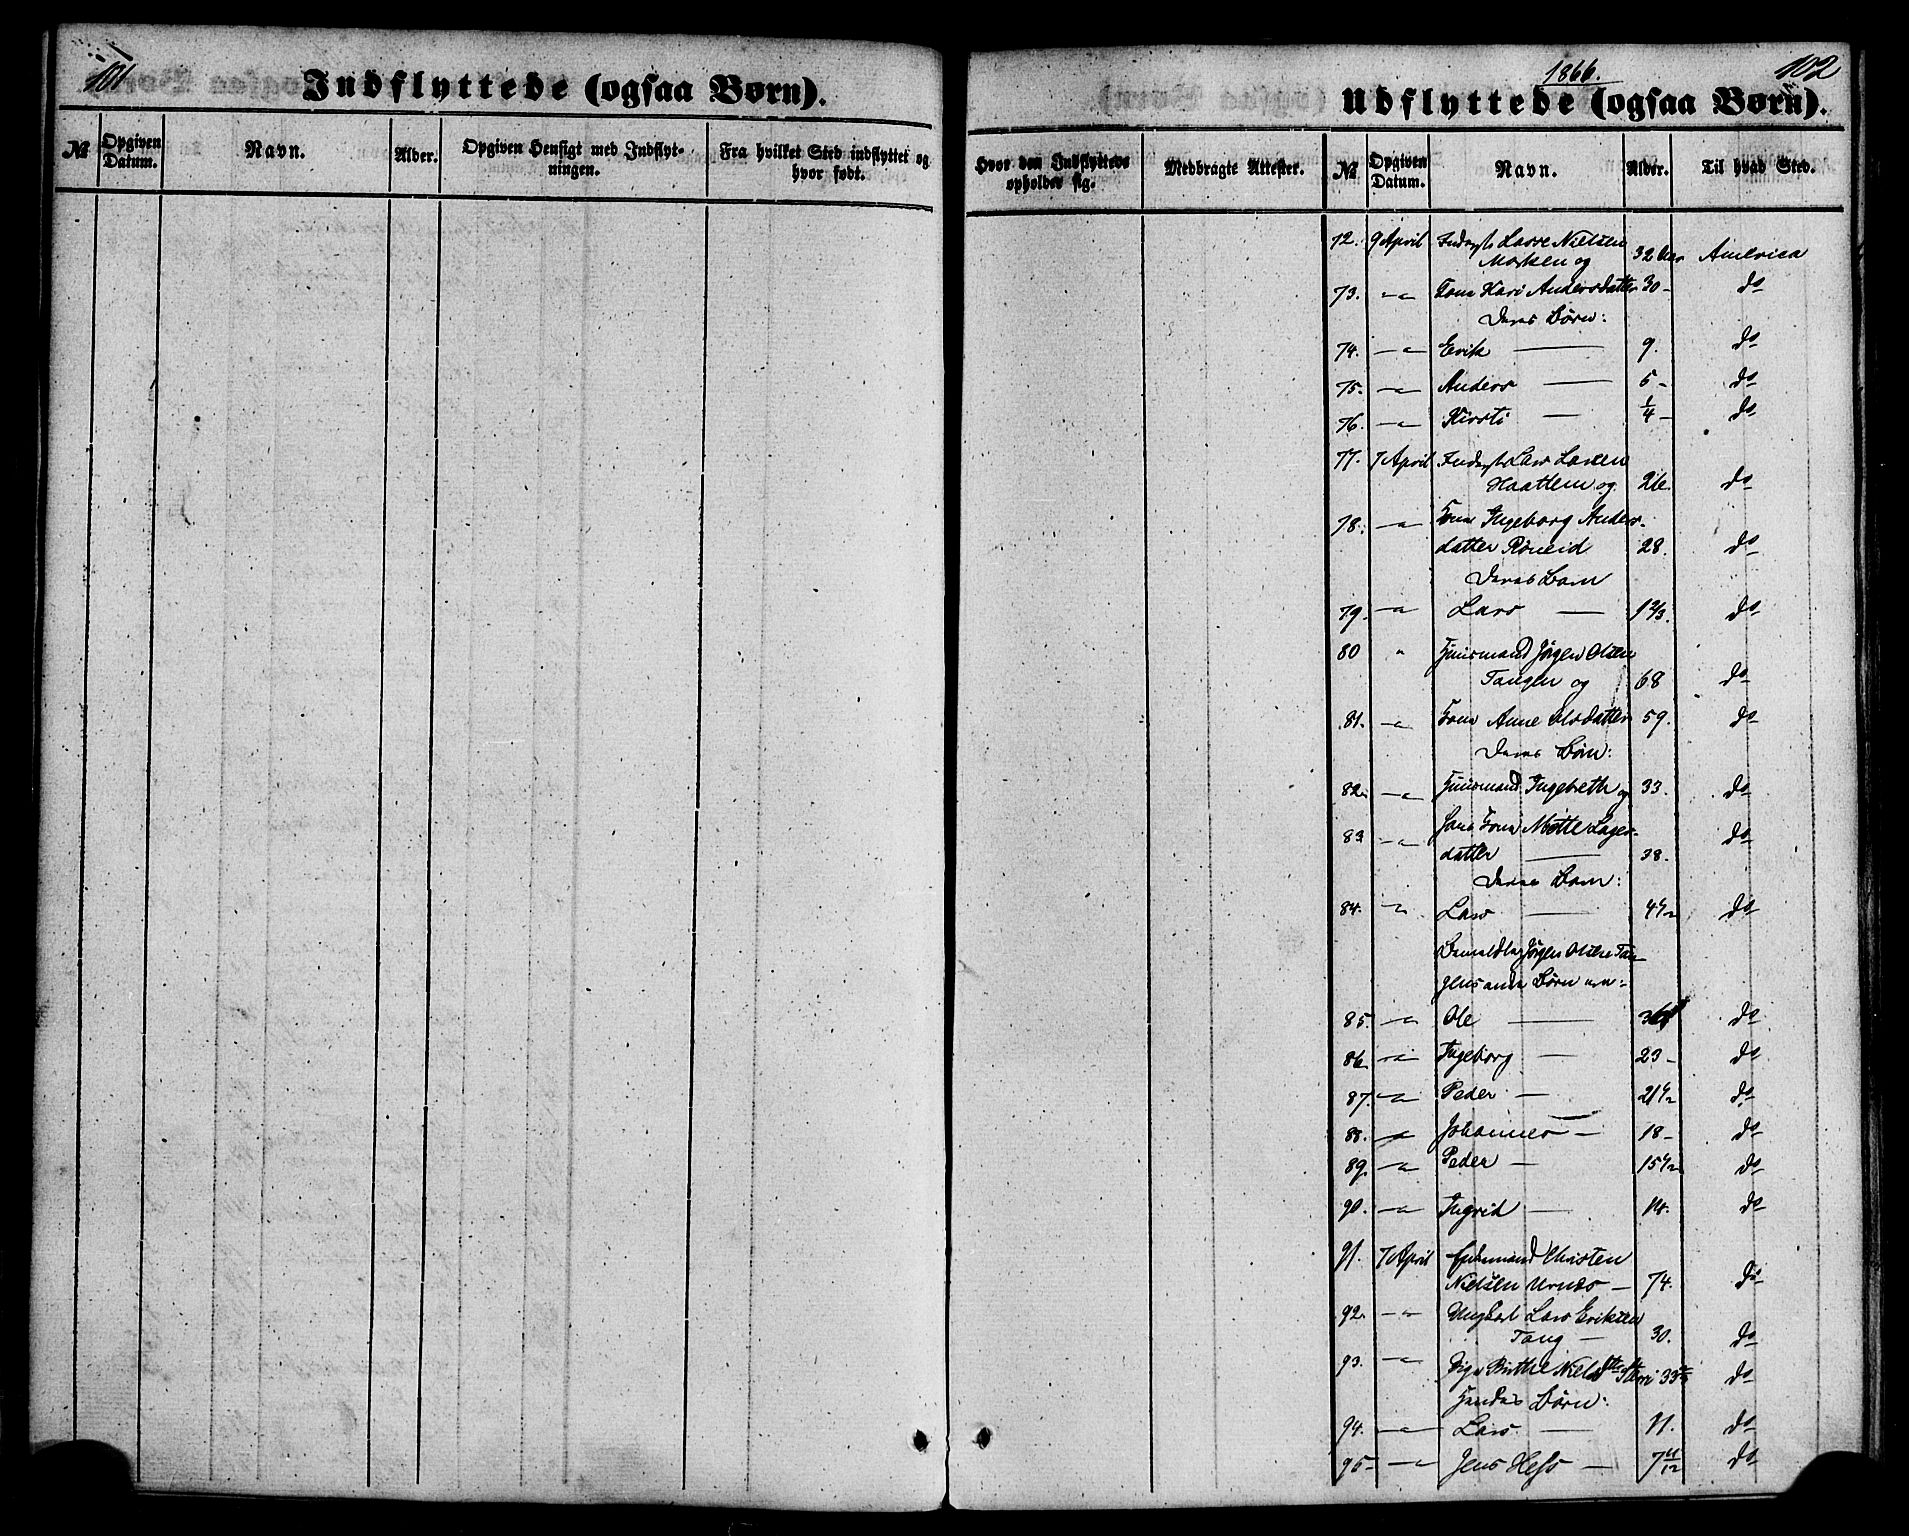 101
Indflyttede (ogsaa Børn).
№ Opgiven Datum. Navn. Alder. Opgiven Hensigt med Indflytningen. Fra hvilket Sted indflyttet og hvor født.
1866. 102
Udflyttede (ogsaa Børn).
Hvor den Indflyttede opholder sig. Medbragte Attester. № Opgiven Datum. Navn. Alder. Til hvad Sted.
72. 9 April Lasse Nielsen
Morken og 32 Aar America
73. -"- Kona Kari Andersdatter 30 - do
Deres Børn:
74. -"- Erik — 9. do
75. -"- Anders — 5 - do
76. -"- Kirsti — 1/4 - do
77. 7 April Lars Larsen
Haatlem og 26. do
78. -"- Kona Ingeborg Anders-
datter Røneid 28. do
Deres Barn
79. -"- Lars — 1 2/3. do
80 " Huusmand Jørgen Olsen
Tangen og 68 do
81. -"- Kona Anne Olsdatter 59. do
Deres Børn:
82. -"- Huusmand Ingebreth og 33. do
83 -"- hans Kona Mette Lages-
datter — 38. do
Deres Barn:
84. " Lars — 4 1/2 do
Jørgen Olsen Tan-
gens andre Børn ere:
85. -"- Ole — do
86 -"- Ingeborg — 23 - do
87. -"- Peder — 21 1/2 do
88. -"- Johannes — 18 - do
89. -"- Peder — 15 1/2 do
90. -"- Ingrid — 14. do
91. 7 April Christen
Nielsen Urnæs — 74. do
92. -"- Ungkarl Lars Eriksen
Tang — 30. do
93. -"- Pige Birthe Niels do
Hendes Børn:
94. -"- Lars — 11. do
95 -"- Jens Hess — 7 11/12 do